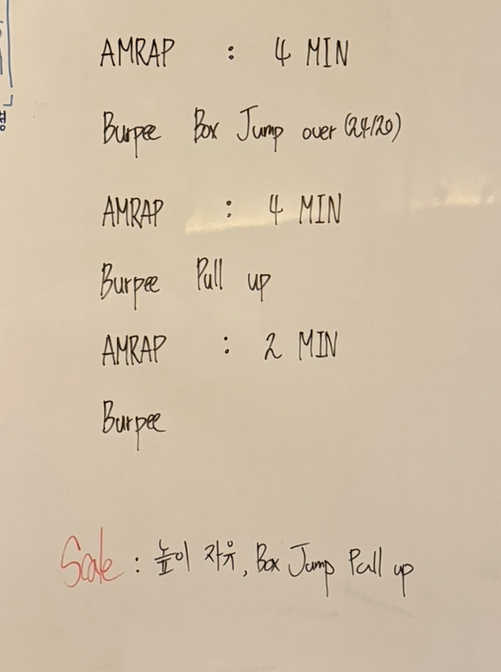 AMRAP : 4 MIN
Burpee Box Jump over (24/20)
AMRAP : 4 MIN
Burpee Pull up
AMRAP : 2 MIN
Burpee
Scale : 높이 자유, Box Jump Pull up